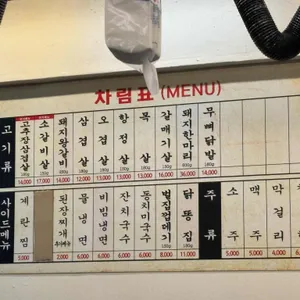 차림표 (MENU)
고기류
고추장삼겹살 180g 16,000
소갈비살 17,000
돼지왕갈비 14,000
삼겹살
오겹살
항정살
목살
갈매기살 180g
돼지한마리 36,000
무뼈닭발 180g 14,000
사이드메뉴
계란찜 5,000
된장찌개 2,000
물냉면 6,000
비빔냉면 6,000
잔치국수 5,000
동치미국수 5,000
벌집껍데기 8,000
닭똥집 11,000
주류
소주 5,000
맥주 5,000
막걸리